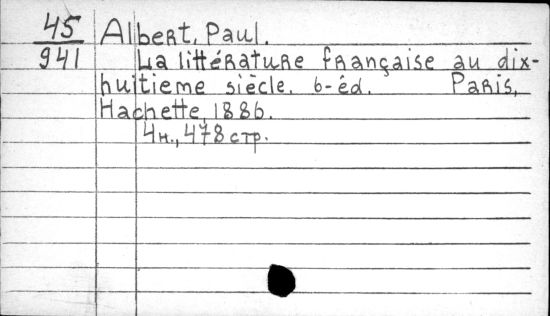 45 Albert, Paul.
941 La littérature française au dix-
huitieme siècle. 6-éd. Paris,
Hachette, 1886.
4н., 478 стр.